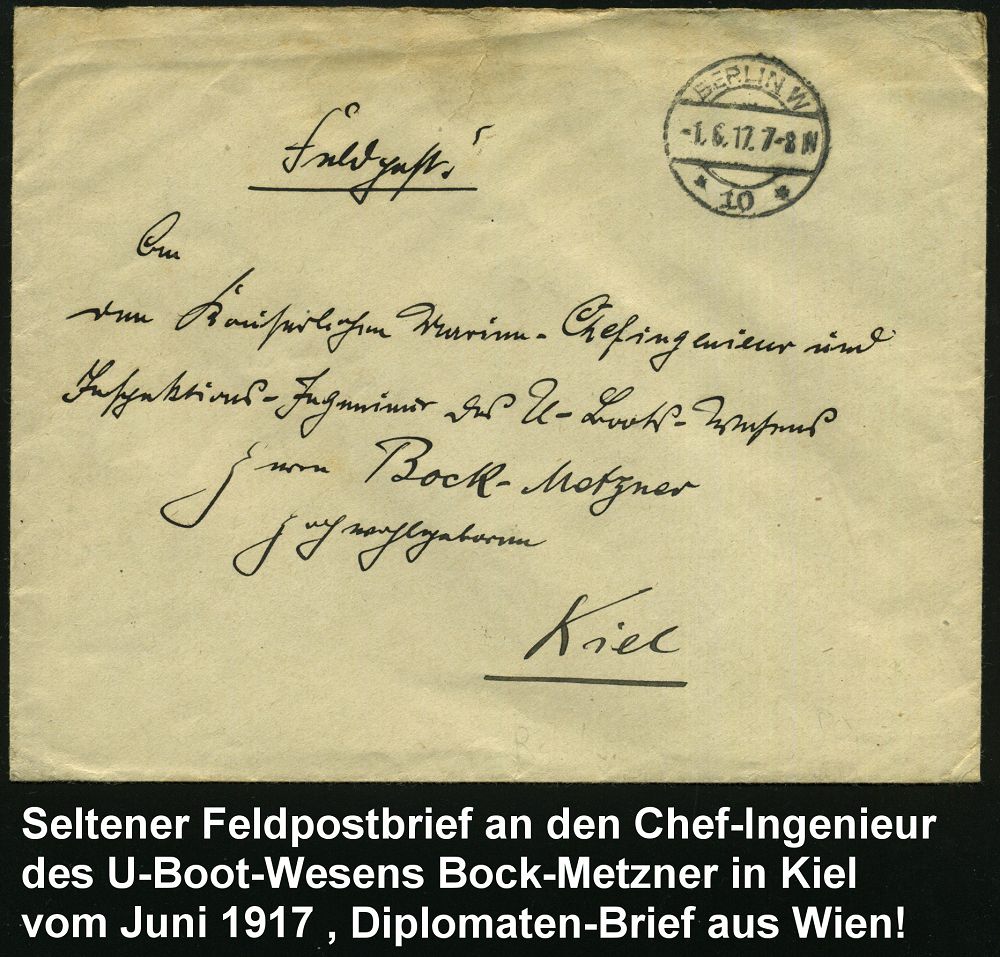 Feldpost.
BERLIN W
-1.6.17.7-8 N
* 10 *
An
den Kaiserlichen Marine-Chefingenieur und
Inspektions-Ingenieur des U-Boots-Wesens
Herrn Bock-Metzner
Hochwohlgeboren
Kiel
Seltener Feldpostbrief an den Chef-Ingenieur
des U-Boot-Wesens Bock-Metzner in Kiel
vom Juni 1917 , Diplomaten-Brief aus Wien!